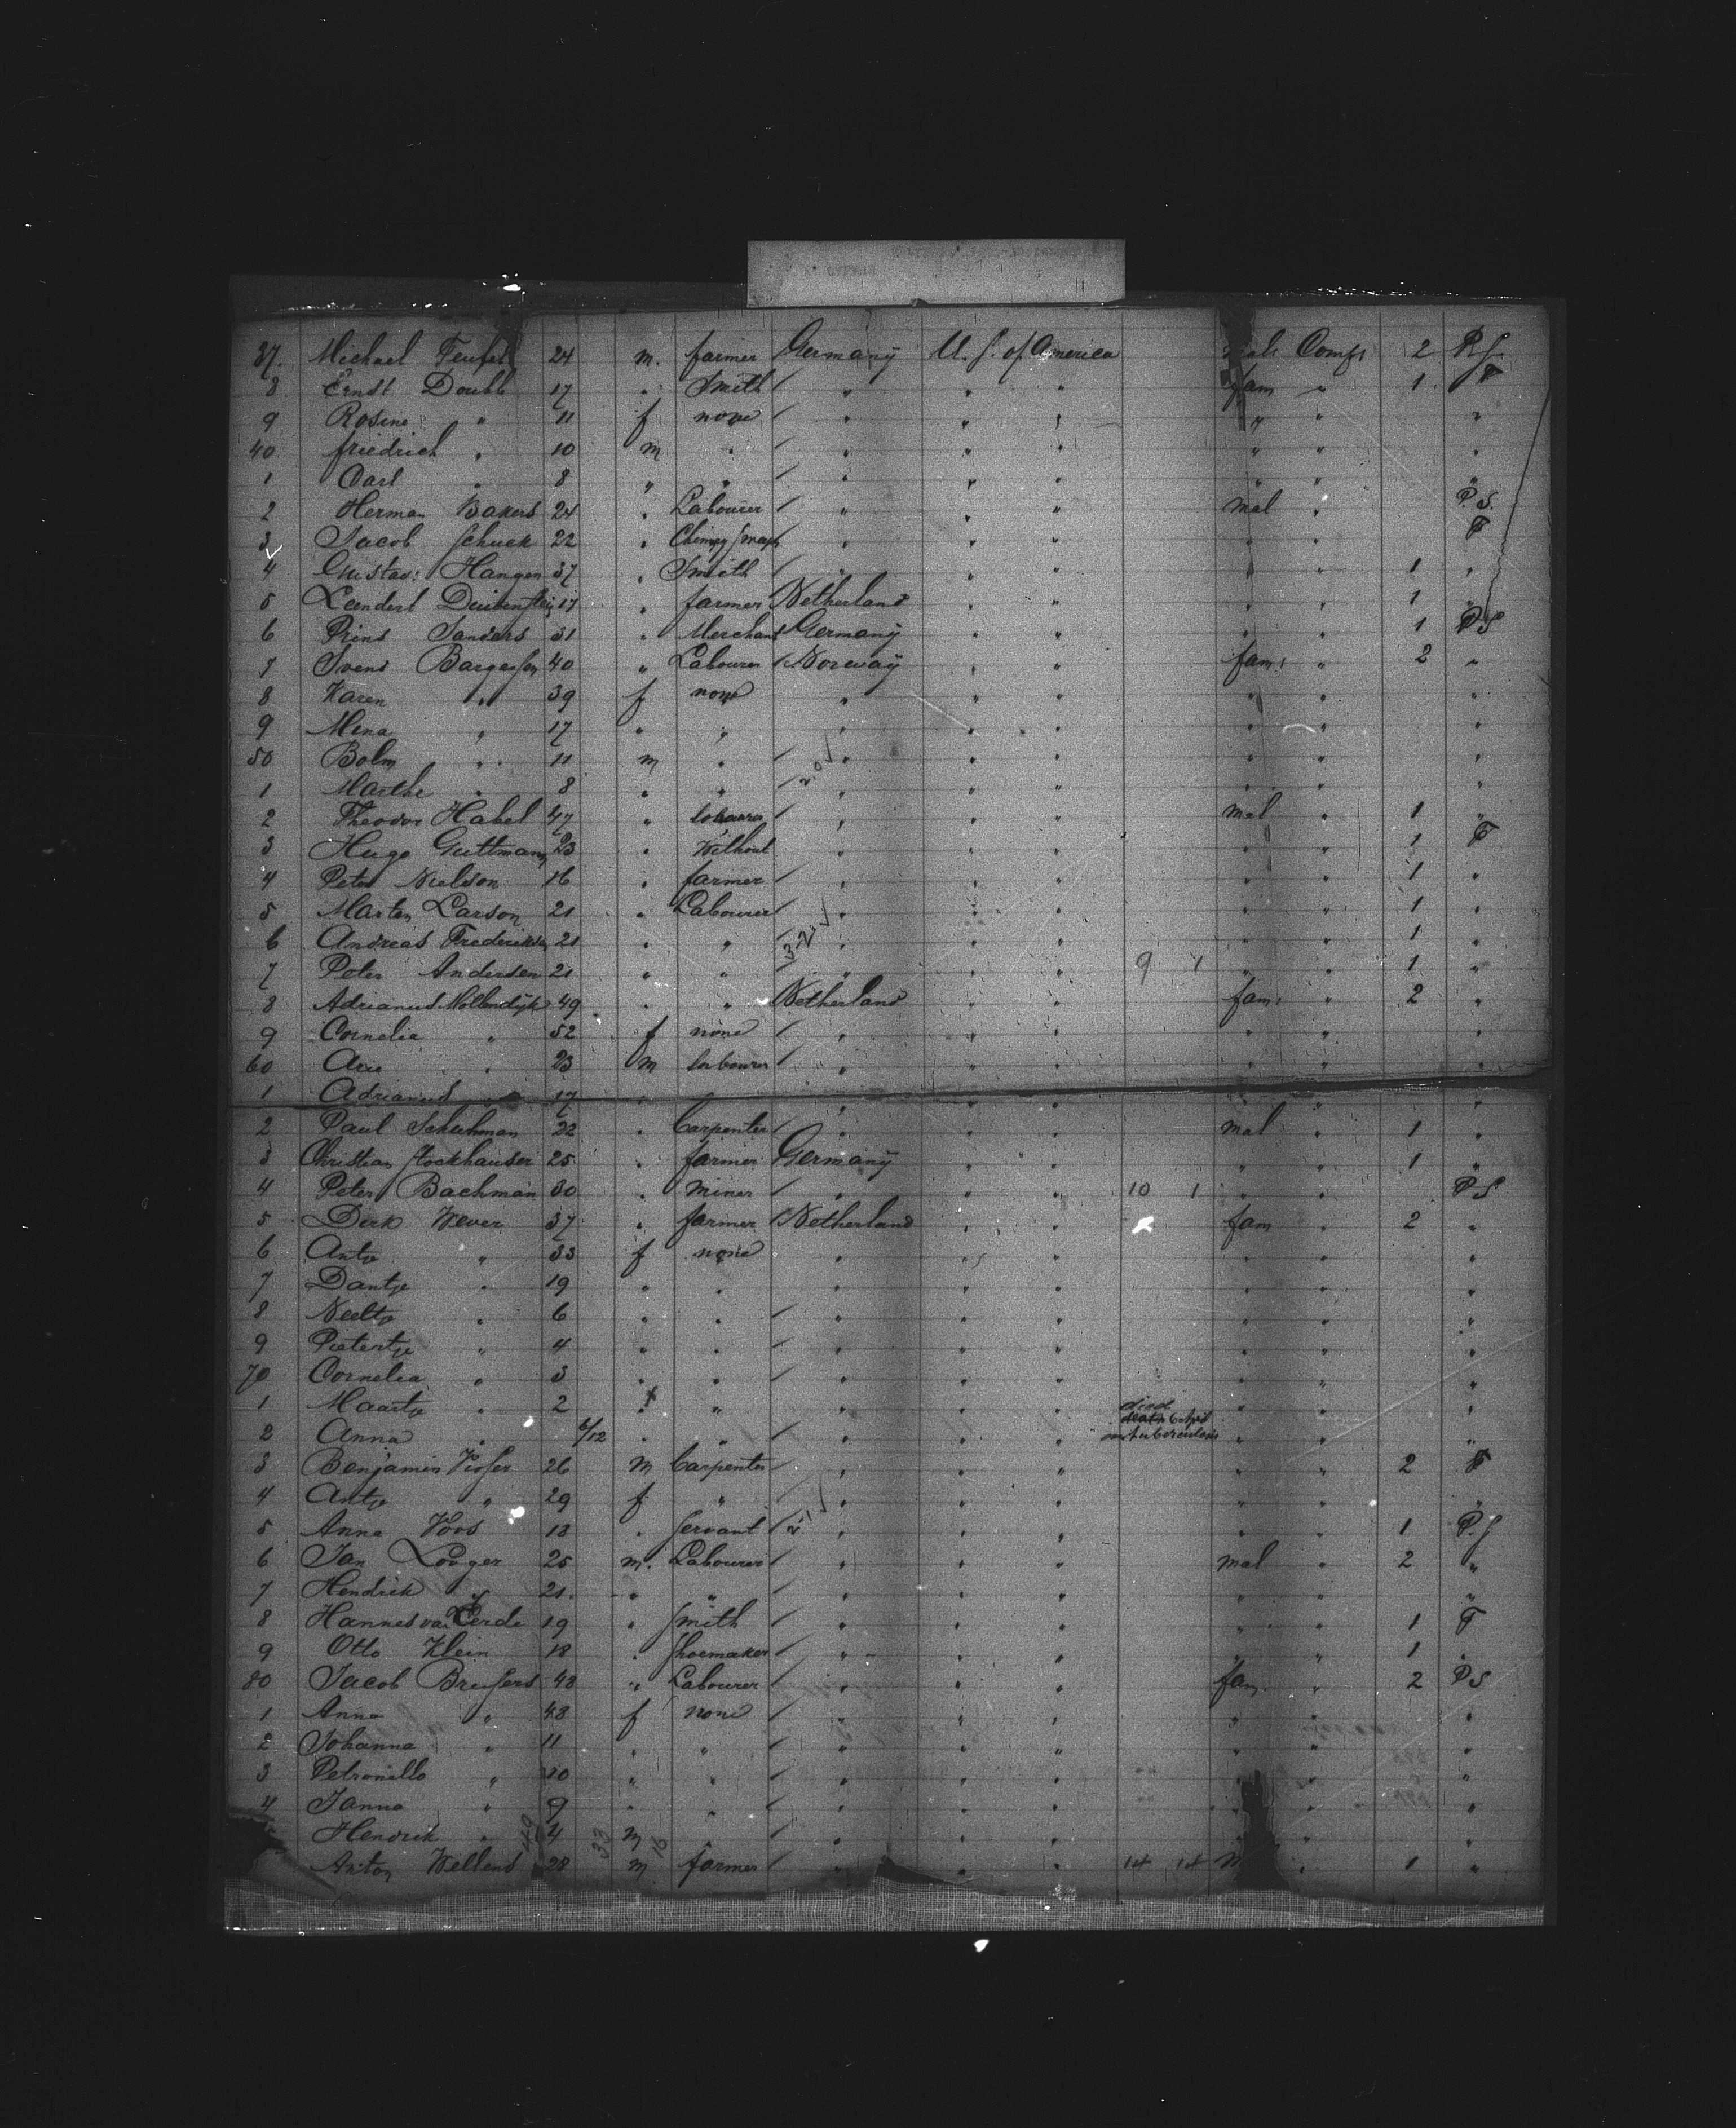 37. Michael Teufel 24 m. farmer Germany U. S. of America male Comp. 2 P.S.
8 Ernst Doubb 17 " Smith " " " fam " 1 F
9 Rosine " 11 f none " " " " " "
40 friedrich " 10 m " " " " " " "
1 Carl " 8 " " " " " " " "
2 Herman Bakers 24 " Labourer " " " mal " P.S.
3 Jacob Schuck 22 " " " " " " F
4 Gustav: Hangen 37 " Smith " " " " " 1 "
5 Leendert 17 " farmer Netherland " " " " 1 "
6 Prins Sanders 31 " Merchant Germany " " " " 1 PS
7 Svend 40 " Labourer Norway " " fam. " 2 "
8 Karen " 39 f none " " " " " "
9 Mina " 17 " " " " " " " "
50 Bolm " 11 m " " " " " " "
1 Marthe " 8 " " " " " " " "
2 Theodor Habel 47 " labourer " " " mal " 1 "
3 Hugo Guttmann 23 " Without " " " " " 1 F
4 Peter Nielson 16 " farmer " " " " " 1 "
5 Marten Larson 21 " Labourer " " " " " 1 "
6 Andreas Frederiksen 21 " " " " " " " 1 "
7 Peter Andersen 21 " " " " " 9 1 " " 1 "
8 Adrianus Mollendijk 49 " " Netherland " " fam. " 2 "
9 Cornelia " 52 f none " " " " " "
60 Arie " 23 m labourer " " " " " "
1 Adrianus " 17 " " " " " " "
2 Paul Schuhman 22 " Carpenter " " " mal " 1 "
3 Christian Stockhauser 25 " farmer Germany " " " " 1 "
4 Peter Bachman 30 " miner " " " 10 1 " " PS
5 Dirk Wever 37 " farmer Netherland " " fam " 2 "
6 Antje " 33 f none " " " " " "
7 Dantje " 19 " " " " " " " "
8 Neeltje " 6 " " " " " " " "
9 Pietertje " 4 " " " " " " " "
70 Cornelia " 3 " " " " " " " "
1 Maartje " 2 " " " " " died " " "
2 Anna " 6/12 " " " " " " " "
3 Benjamin Visser 26 m Carpenter " " " " " 2 F
4 Antje " 29 f " " " " " " "
5 Anna Voos 18 " servant " " " " " 1 P.S
6 Jan Looger 25 m. Labourer " " " mal " 2 "
7 Hendrik " 21 " " " " " " " "
8 Hannes van Eerde 19 " Smith " " " " " 1 F
9 Otto Klein 18 " Shoemaker " " " " " 1 "
80 Jacob 48 " Labourer " " " fam. " 2 PS
1 Anna " 48 f none " " " " " "
2 Johanna " 11 " " " " " " " "
3 Petronilla " 10 " " " " " " " "
4 Janna " 9 " " " " " " " "
Hendrik " 4 m " " " " " " "
Anton Wellens 28 m farmer " " " 14 14 m " 1 "